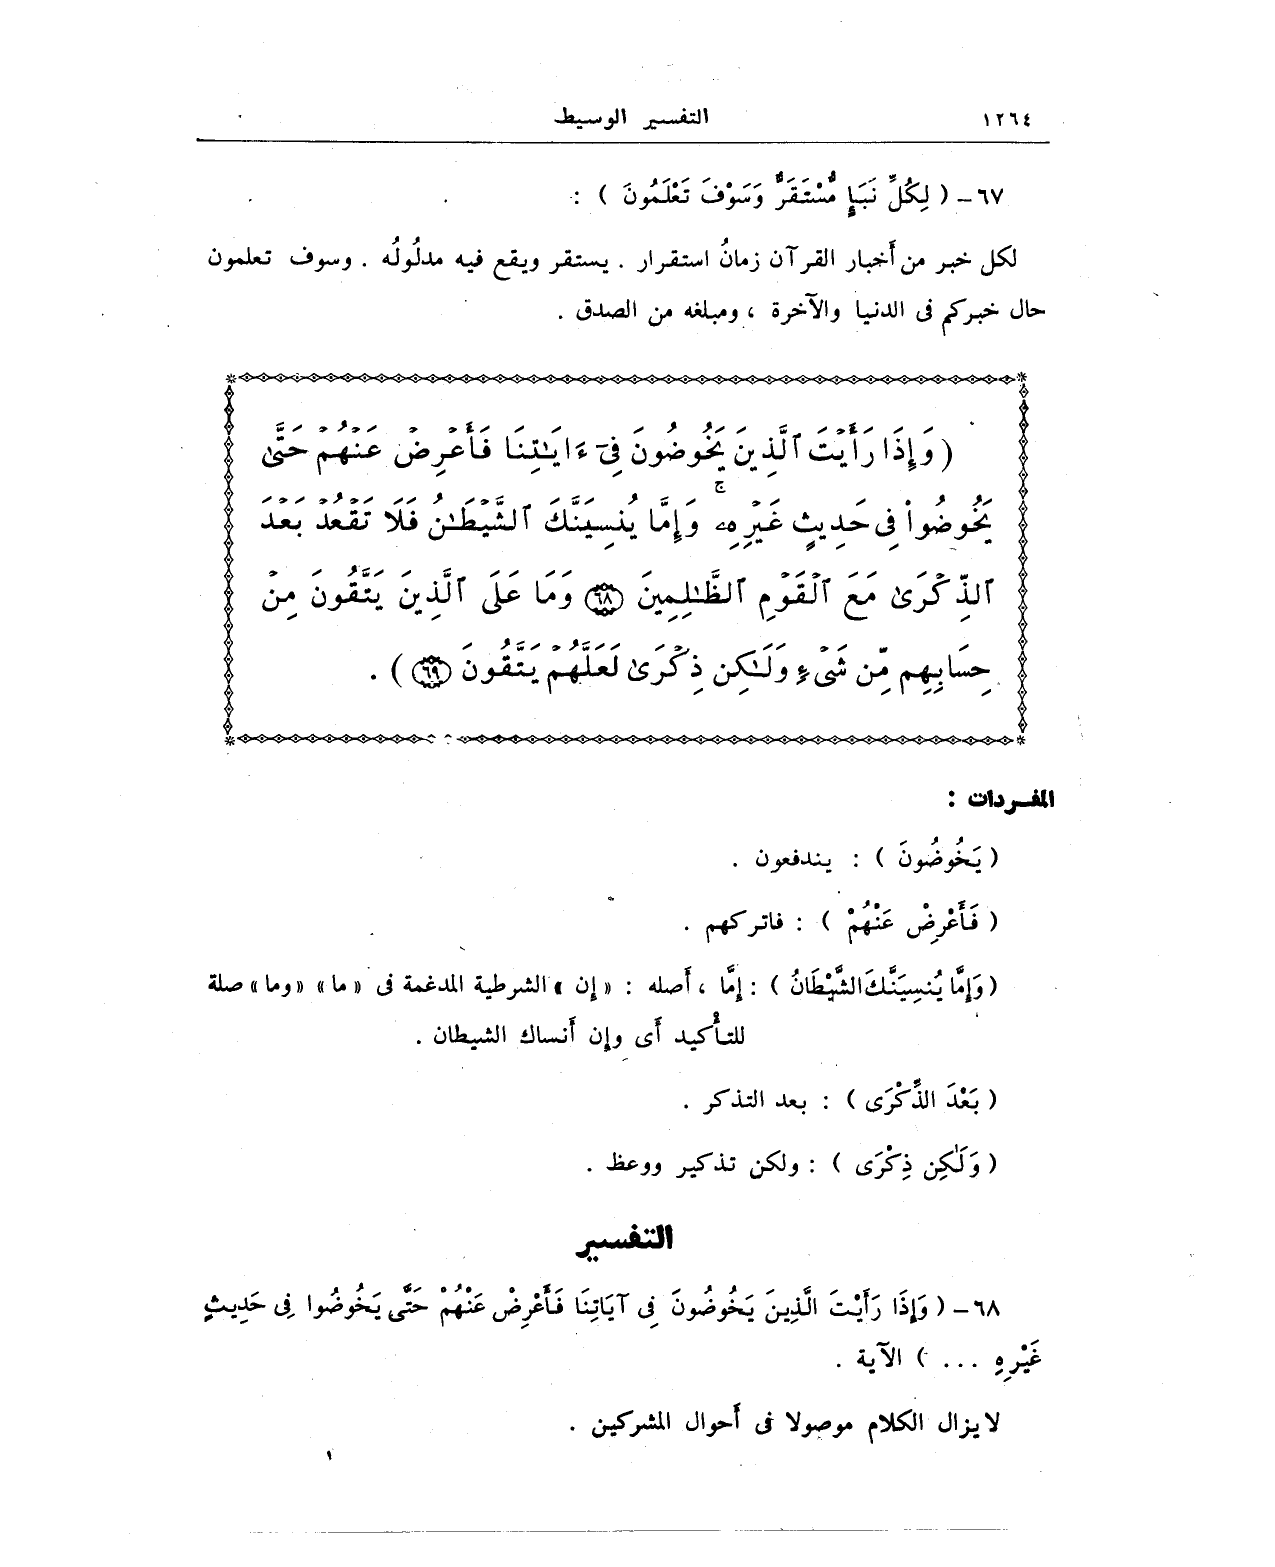 ١٢٦٤ التفسير الوسيط
٦٧ - ( لِكُلِّ نَبَإٍ مُّسْتَقَرٌّ وَسَوْفَ تَعْلَمُونَ ) :
لكل خبر من أَخبار القرآن زمانُ استقرار . يستقر ويقع فيه مدلُولُه . وسوف تعلمون
حال خبركم فى الدنيا والآخرة ، ومبلغه من الصدق .
( وَإِذَا رَأَيْتَ ٱلَّذِينَ يَخُوضُونَ فِىٓ ءَايَـٰتِنَا فَأَعْرِضْ عَنْهُمْ حَتَّىٰ
يَخُوضُوا۟ فِى حَدِيثٍ غَيْرِهِۦ ۚ وَإِمَّا يُنسِيَنَّكَ ٱلشَّيْطَـٰنُ فَلَا تَقْعُدْ بَعْدَ
ٱلذِّكْرَىٰ مَعَ ٱلْقَوْمِ ٱلظَّـٰلِمِينَ ٦٨ وَمَا عَلَى ٱلَّذِينَ يَتَّقُونَ مِنْ
حِسَابِهِم مِّن شَىْءٍ وَلَـٰكِن ذِكْرَىٰ لَعَلَّهُمْ يَتَّقُونَ ٦٩ ) .
المفـردات :
( يَخُوضُونَ ) : يندفعون .
( فَأَعْرِضْ عَنْهُمْ ) : فاتركهم .
( وَإِمَّا يُنسِيَنَّكَ الشَّيْطَانُ ) : إِمَّا ، أَصله : «إِن» الشرطية المدغمة فى «ما» «وما» صلة
للتأْكيد أَى وإِن أَنساك الشيطان .
( بَعْدَ الذِّكْرَى ) : بعد التذكر .
( وَلَـٰكِن ذِكْرَى ) : ولكن تذكير ووعظ .
التفسير
٦٨ - ( وَإِذَا رَأَيْتَ الَّذِينَ يَخُوضُونَ فِى آيَاتِنَا فَأَعْرِضْ عَنْهُمْ حَتَّى يَخُوضُوا فِى حَدِيثٍ
غَيْرِهِ ... ) الآية .
لا يزال الكلام موصولا فى أَحوال المشركين .
١